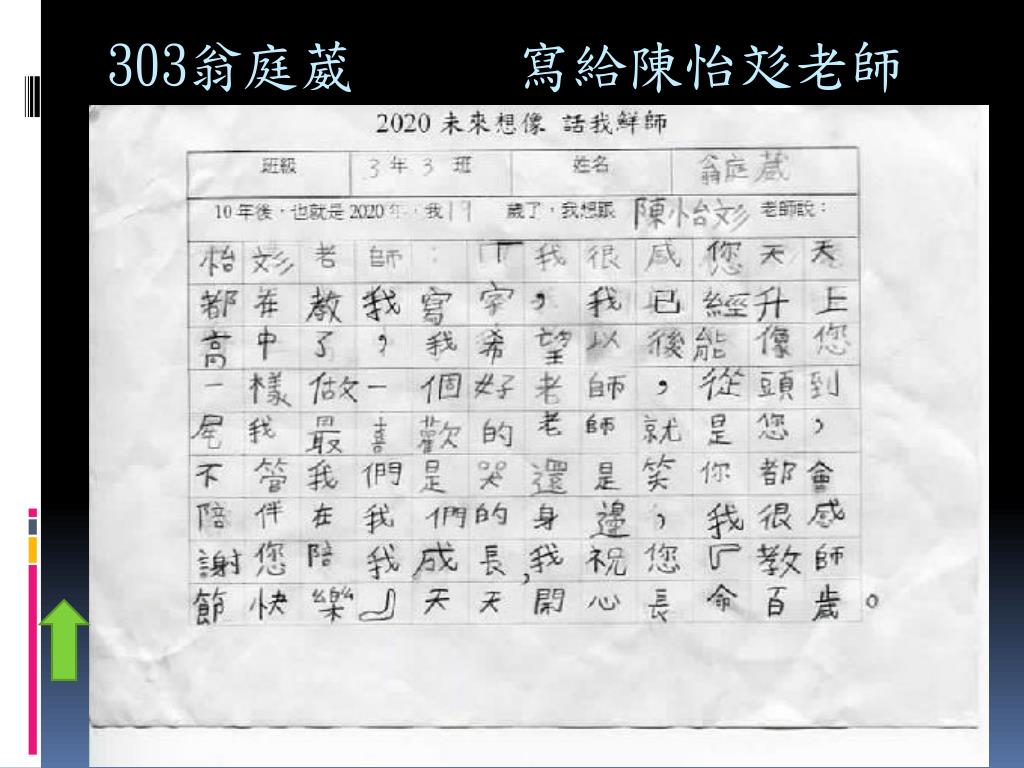 303翁庭葳 寫給陳怡彣老師
2020 未來想像 話我鮮師
班級 3 年 3 班 姓名 翁庭葳
10 年後，也就是 2020 年，我 19 歲了，我想跟 陳怡彣 老師說：
怡彣老師：「我很感您天天
都在教我寫字，我已經升上
高中了，我希望以後能像您
一樣做一個好老師，從頭到
尾我最喜歡的老師就是您，
不管我們是哭還是笑你都會
陪伴在我們的身邊，我很感
謝您陪我成長，我祝您『教師
節快樂』天天開心長命百歲。